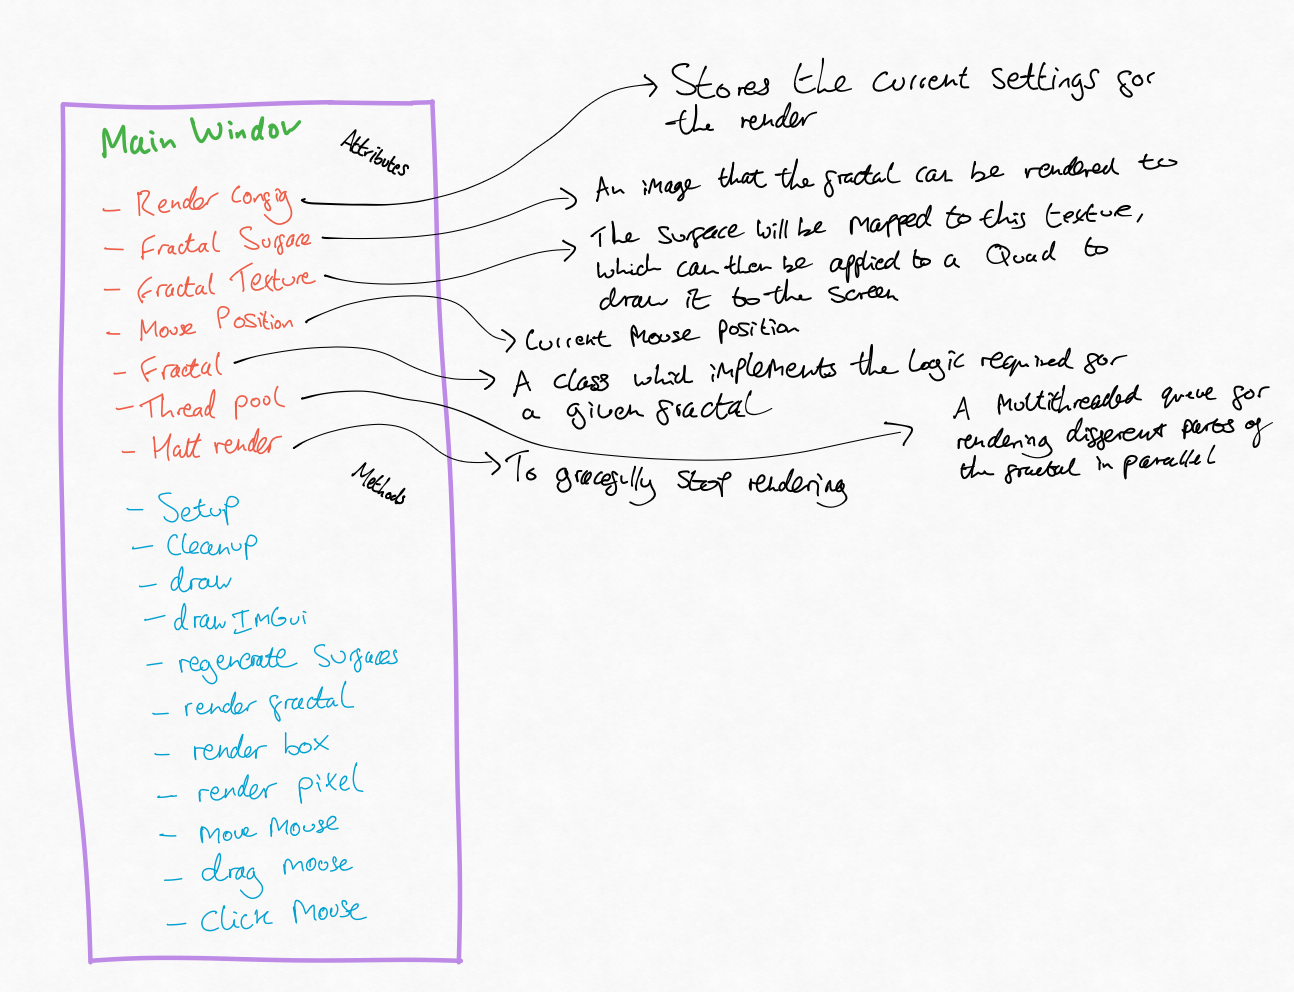 Main Window
Attributes
- Render Config
- Fractal Surface
- Fractal Texture
- Mouse Position
- Fractal
- Thread pool
- Halt render
Methods
- Setup
- Cleanup
- draw
- draw ImGui
- regenerate Surfaces
- render fractal
- render box
- render pixel
- Move Mouse
- drag mouse
- Click Mouse
Stores the current settings for
the render
An image that the fractal can be rendered to
The surface will be mapped to this texture,
which can then be applied to a Quad to
draw it to the screen
Current Mouse Position
A class which implements the logic required for
a given fractal
A Multithreaded queue for
rendering different parts of
the fractal in parallel
To gracefully stop rendering